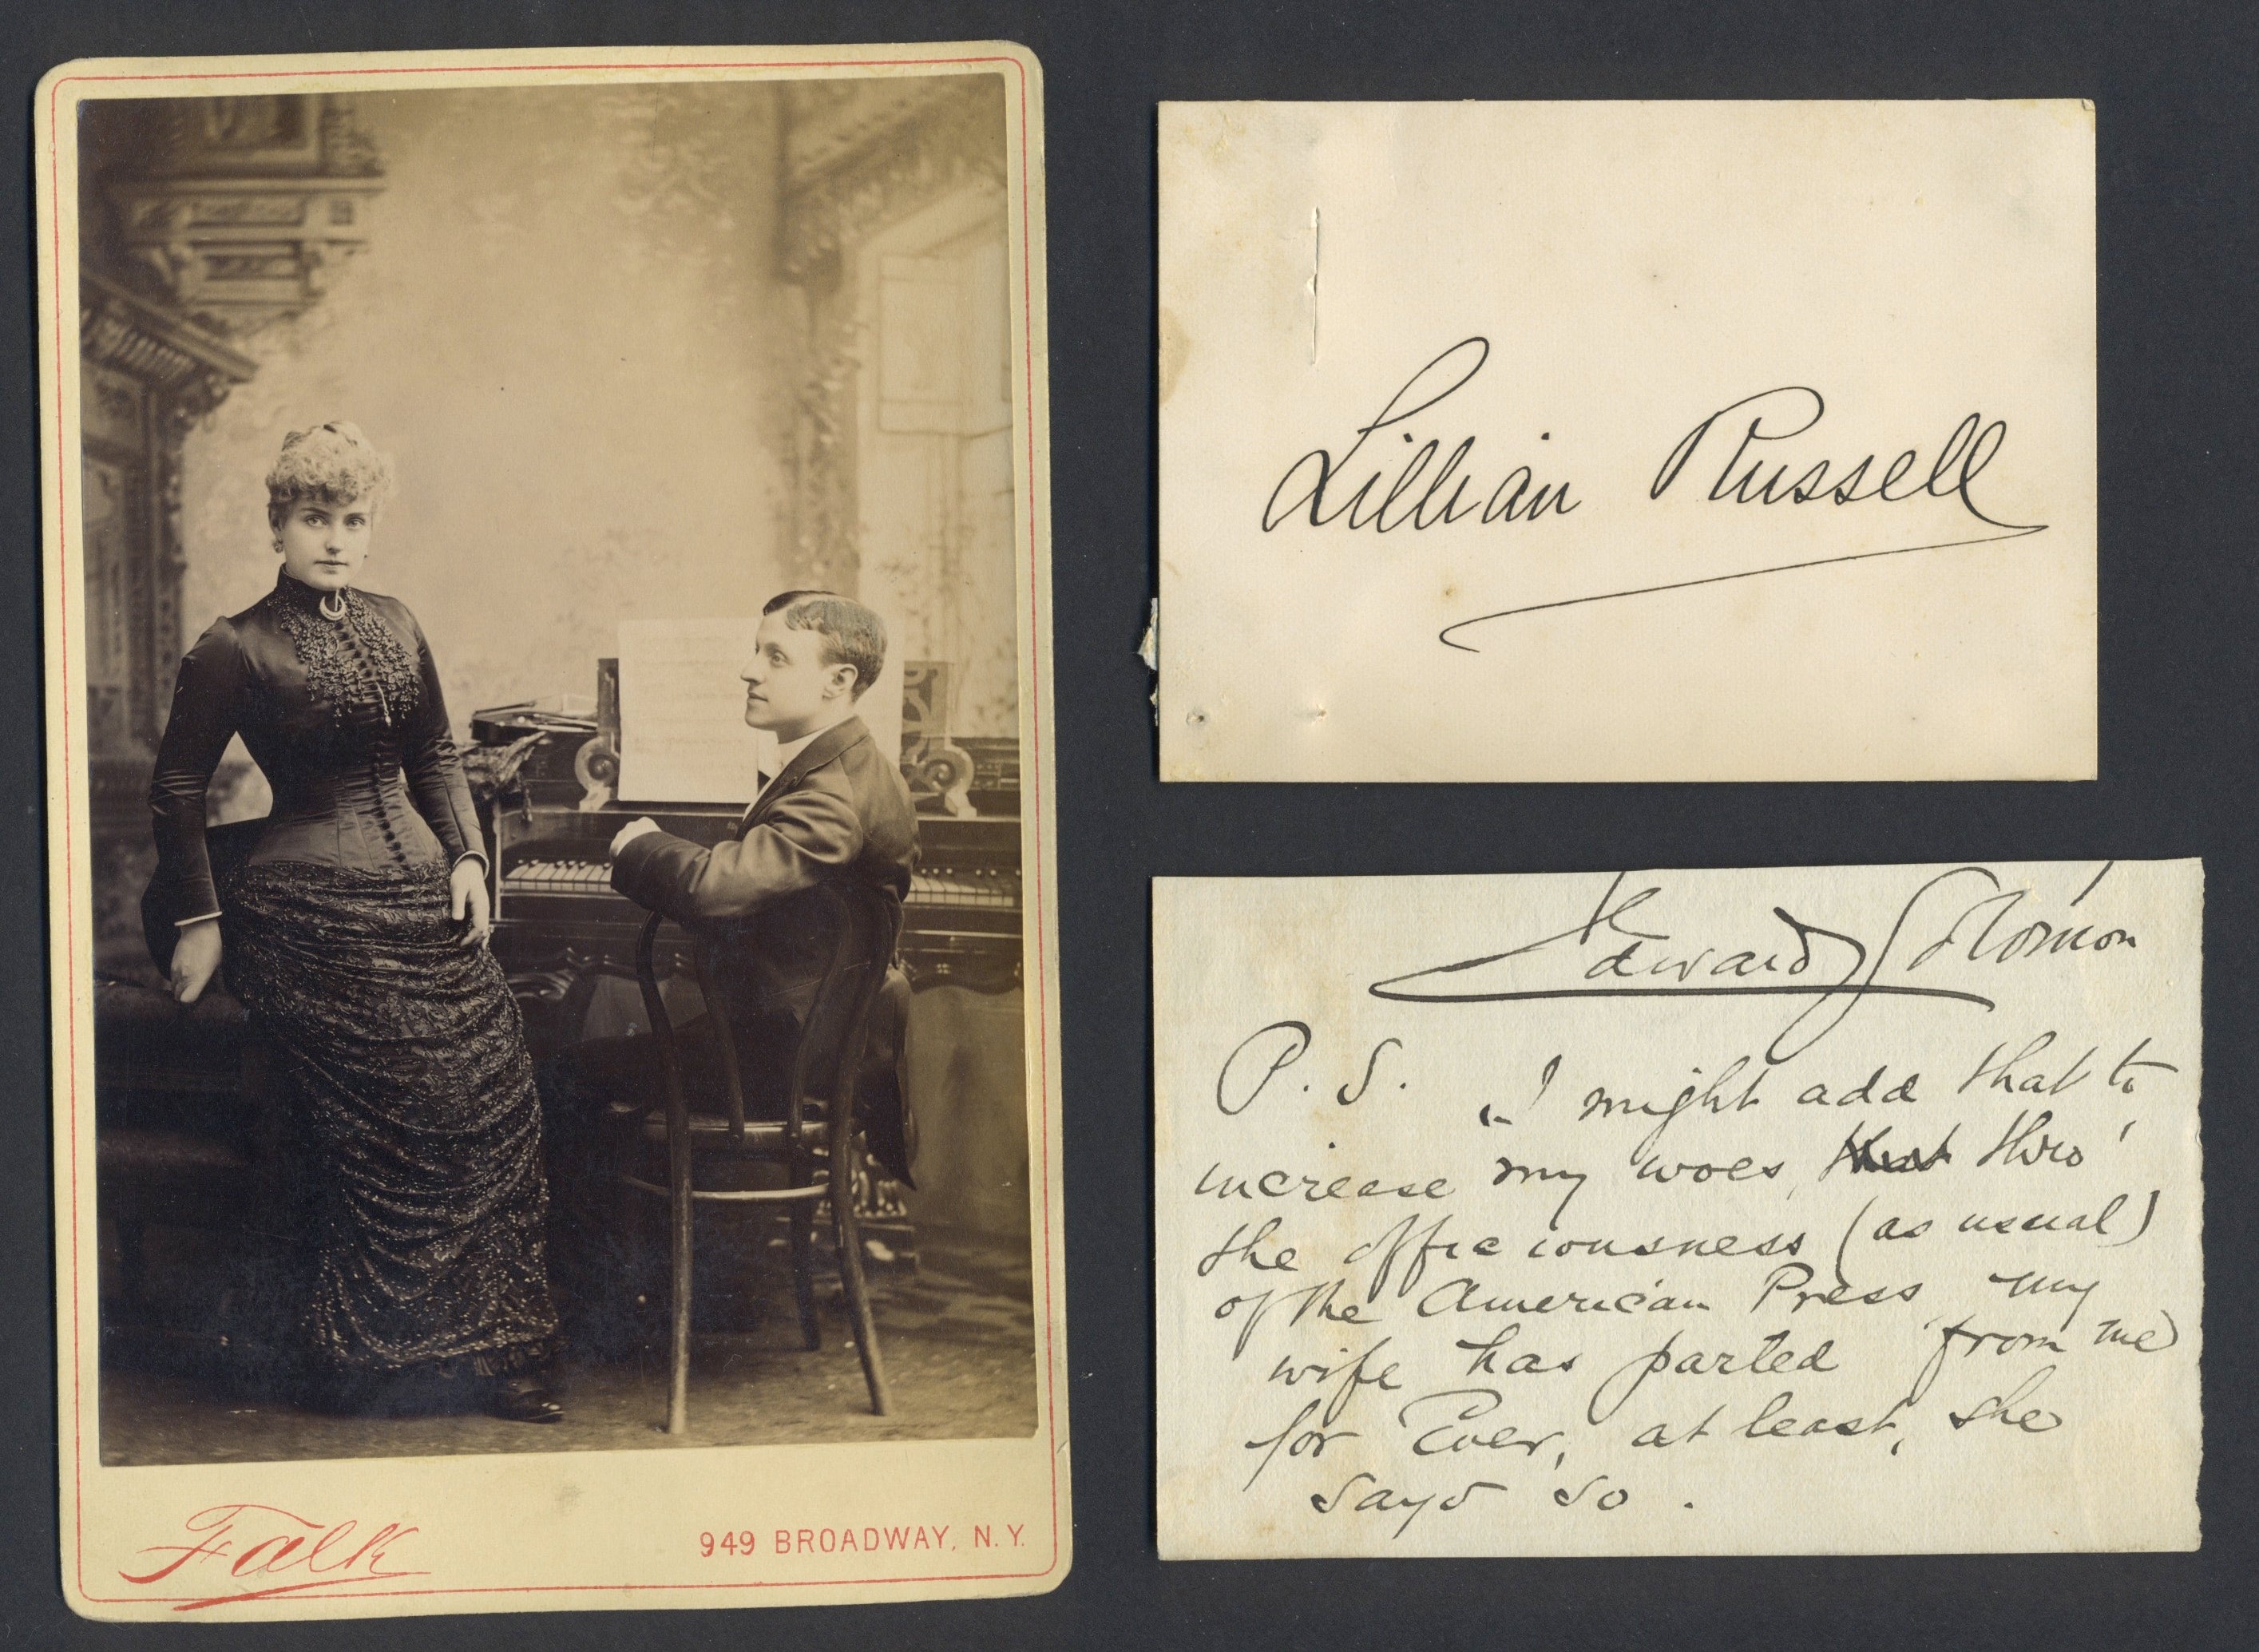 Falk
949 BROADWAY, N.Y.
Lillian Russell
Edward Solomon
P.S. I might add that to
increase my woes, thro'
the officiousness (as usual)
of the American Press my
wife has parted from me
for Ever, at least, she
says so.